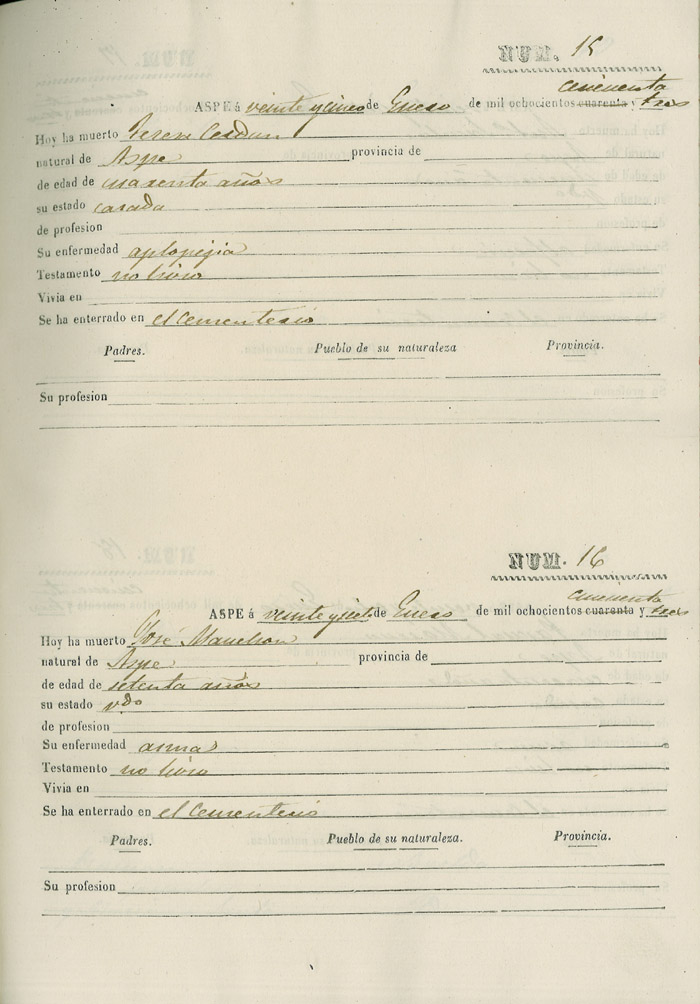 NUM. 15
cincuenta
ASPE á veinte y cinco de Enero de mil ochocientos cuarenta y tres
Hoy ha muerto Teresa
natural de Aspe provincia de
de edad de cuarenta años
su estado casada
de profesion
Su enfermedad aplopegia
Testamento no hizo
Vivia en
Se ha enterrado en el Cementerio
Padres. Pueblo de su naturaleza Provincia.
Su profesion
NUM. 16
cincuenta
ASPE á veinte y siete de Enero de mil ochocientos cuarenta y tres
Hoy ha muerto José
natural de Aspe provincia de
de edad de setenta años
su estado vdo
de profesion
Su enfermedad asma
Testamento no hizo
Vivia en
Se ha enterrado en el Cementerio
Padres. Pueblo de su naturaleza. Provincia.
Su profesion